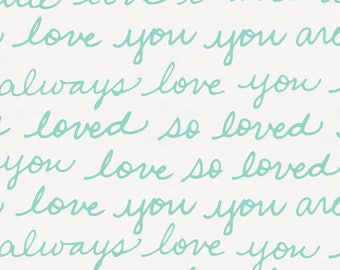 love
love you you are
always love you
loved so loved
you love so loved
love you you are
always love you